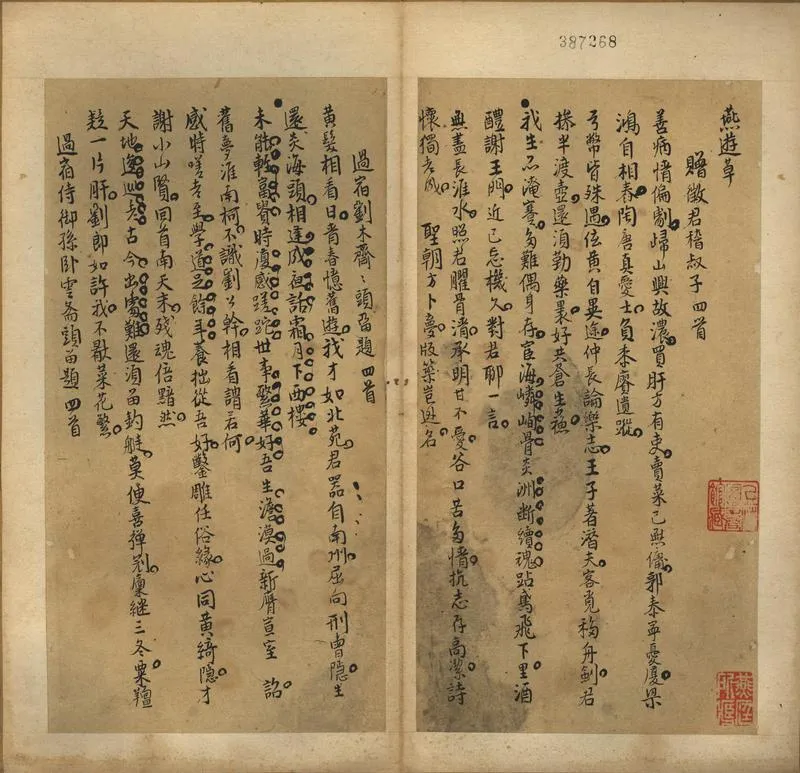 387268
燕遊草
贈徵君稽叔子四首
善病惜偏劇歸山興故濃買肝方有吏賣菜已無傭郭泰寧憂廈梁
鴻自相舂陶唐真愛士負耒廢遺蹤
弓幣皆殊遇位黃自異途仲長論樂志王子著潛夫客覓稿舟劍君
操半渡壺還須勤藥裹好共蒼生蘓
我生只淹蹇多難偶身存宦海嶙峋骨炎洲斷續魂跕鳶飛下里酒
醴謝王門近已忘機久對君聊一言
無盡長淮水照君臞骨清承明甘不愛谷口苦多情抗志存高潔詩
懷獨老成 聖朝方卜夢版築豈逃名
過宿劉木齋齋頭留題四首
黃髮相看日青春憶舊遊我才如北苑君器自南州屈向刑曹隱生
還炎海頭相逢成夜話霜月下西樓
未能輕富貴時復感蹉跎世事繁華好吾生澹漠過新膺宣室 詔
舊夢淮南柯不識劉公幹相看謂若何
感時嗟老至學道乏餘年養拙從吾好鑿雕任俗緣心同黃綺隱才
謝小山賢回首南天末殘魂倍黯然
天地逸此老古今出處難還須留釣艇莫便喜禪冠廩繼三冬粟羶
荔一片肝劉郎如許我不歇菜花繁
過宿侍御孫臥雲齋頭留題四首